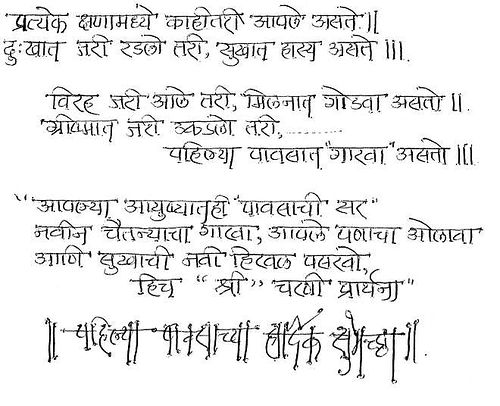 प्रत्येक क्षणामध्ये काहीतरी आपले असते ॥
दुःखात जरी रडलो तरी, सुखात हास्य असते ॥।
विरह जरी आले तरी, मिलनात गोडवा असतो ॥.
ग्रीष्मात जरी उकडलो तरी, ............
पहिल्या पावसात "गारवा" असतो ॥।
"आपल्या आयुष्यातही "पावसाची सर"
नवीन चैतन्याचा गारवा, आपले पणाचा ओलावा
आणि सुखाची नवी हिरवळ पसरवो,
हिच "श्री" चरणी प्रार्थना"
॥ पहिल्या पावसाच्या हार्दिक शुभेच्छा ॥.